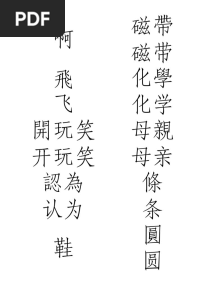 PDF
啊
飛
飞
開玩笑
开玩笑
認為
认为
鞋
磁帶
磁带
化學
化学
母親
母亲
條
条
圓
圆